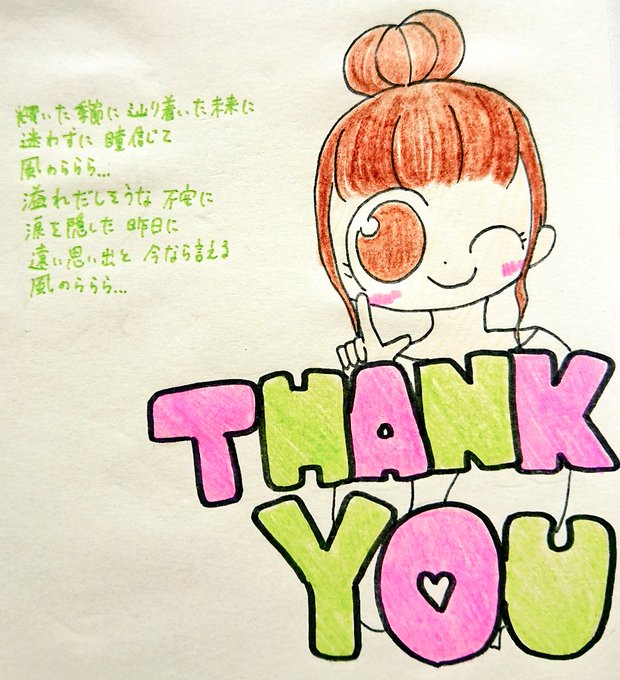 輝いた季節に 辿り着いた未来に
迷わずに 瞳信じて
風のららら…
溢れだしそうな 不安に
涙を隠した 昨日に
遠い思い出と 今なら言える
風のららら…
THANK
YOU